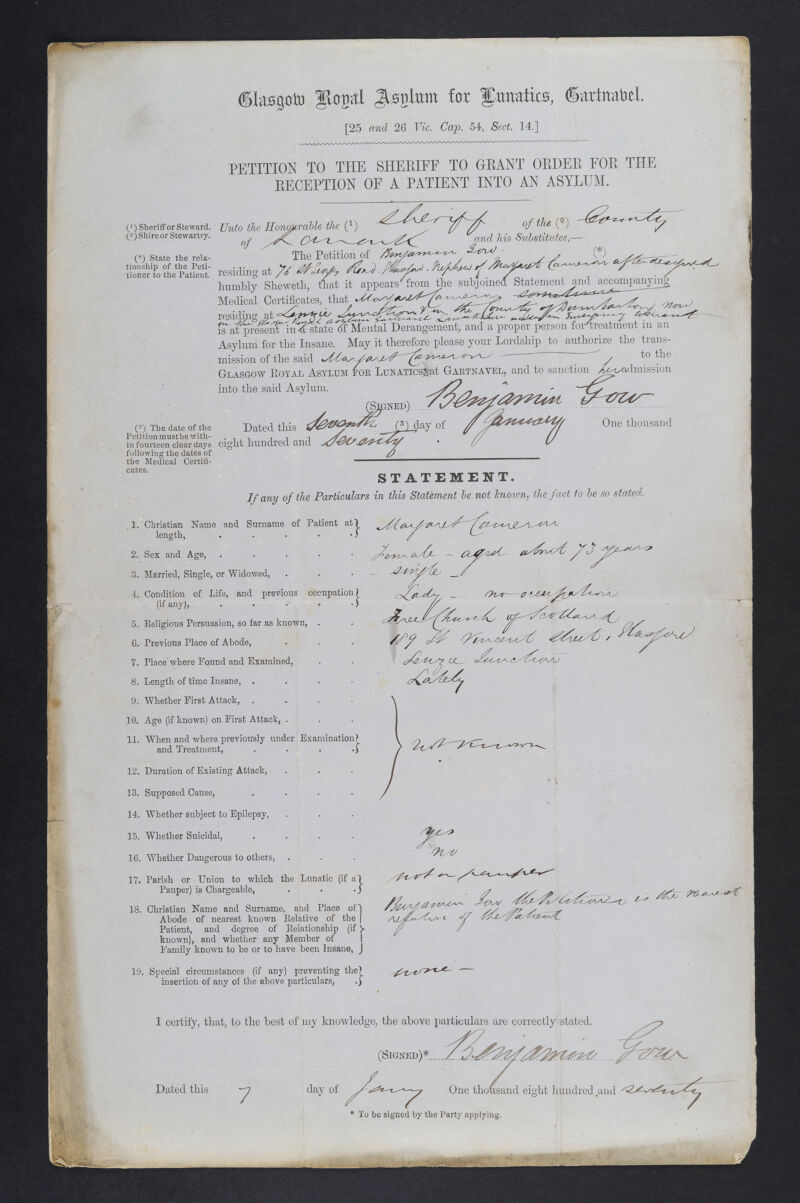 Glasgow Royal Asylum for Lunatics, Gartnavel.
[25 and 26 Vic. Cap. 54, Sect. 14.]
PETITION TO THE SHERIFF TO GRANT ORDER FOR THE
RECEPTION OF A PATIENT INTO AN ASYLUM.
(1) Sheriff or Steward.
(2) Shire or Stewartry.
Unto the Honourable the (1) Sheriff of the (2) County
of Lanark and his Substitutes,—
(*) State the rela-
tionship of the Peti-
tioner to the Patient.
The Petition of Benjamin Gow (*)
residing at 76 St Georges Road Glasgow. Nephew of Margaret Cameron after designed
humbly Sheweth, that it appears from the subjoined Statement and accompanying
Medical Certificates, that Margaret Cameron sometime
residing at Lenzie Junction in the County of Dumbarton now
in the Glasgow Royal Asylum Gartnavel Lanarkshire under an Emergency Warrant
is at present in a state of Mental Derangement, and a proper person for treatment in an
Asylum for the Insane. May it therefore please your Lordship to authorize the trans-
mission of the said Margaret Cameron to the
GLASGOW ROYAL ASYLUM FOR LUNATICS at GARTNAVEL, and to sanction her admission
into the said Asylum.
(SIGNED) Benjamin Gow
(3) The date of the
Petition must be with-
in fourteen clear days
following the dates of
the Medical Certifi-
cates.
Dated this Seventh (3) day of January One thousand
eight hundred and Seventy.
STATEMENT.
If any of the Particulars in this Statement be not known, the fact to be so stated.
1. Christian Name and Surname of Patient at
length, Margaret Cameron
2. Sex and Age, Female - aged about 73 years
3. Married, Single, or Widowed, - single -
4. Condition of Life, and previous occupation
(if any), Lady - no occupation
5. Religious Persuasion, so far as known, Free Church of Scotland
6. Previous Place of Abode, 189 St Vincent Street, Glasgow
7. Place where Found and Examined, Lenzie Junction
8. Length of time Insane, Lately
9. Whether First Attack,
10. Age (if known) on First Attack,
11. When and where previously under Examination
and Treatment, not known
12. Duration of Existing Attack,
13. Supposed Cause,
14. Whether subject to Epilepsy,
15. Whether Suicidal, yes
16. Whether Dangerous to others, no
17. Parish or Union to which the Lunatic (if a
Pauper) is Chargeable, not a pauper
18. Christian Name and Surname, and Place of
Abode of nearest known Relative of the
Patient, and degree of Relationship (if
known), and whether any Member of
Family known to be or to have been Insane,
Benjamin Gow the Petitioner is the nearest
relative of the Patient
19. Special circumstances (if any) preventing the
insertion of any of the above particulars, none -
I certify, that, to the best of my knowledge, the above particulars are correctly stated.
(SIGNED)* Benjamin Gow
Dated this 7 day of Jany One thousand eight hundred and seventy
* To be signed by the Party applying.